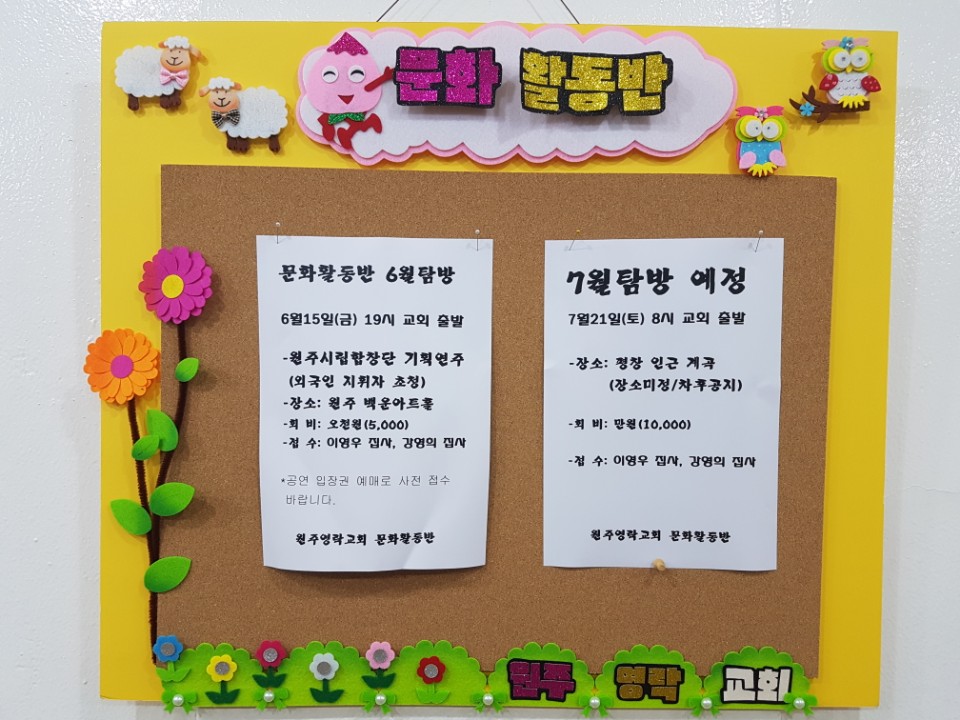 문화 활동반
문화활동반 6월탐방
6월15일(금) 19시 교회 출발
-원주시립합창단 기획연주
(외국인 지휘자 초청)
-장소: 원주 백운아트홀
-회 비: 오천원(5,000)
-접 수: 이영우 집사, 강영희 집사
*공연 입장권 예매로 사전 접수
바랍니다.
원주영락교회 문화활동반
7월탐방 예정
7월21일(토) 8시 교회 출발
-장소: 평창 인근 계곡
(장소미정/차후공지)
-회 비: 만원(10,000)
-접 수: 이영우 집사, 강영희 집사
원주영락교회 문화활동반
원주 영락 교회